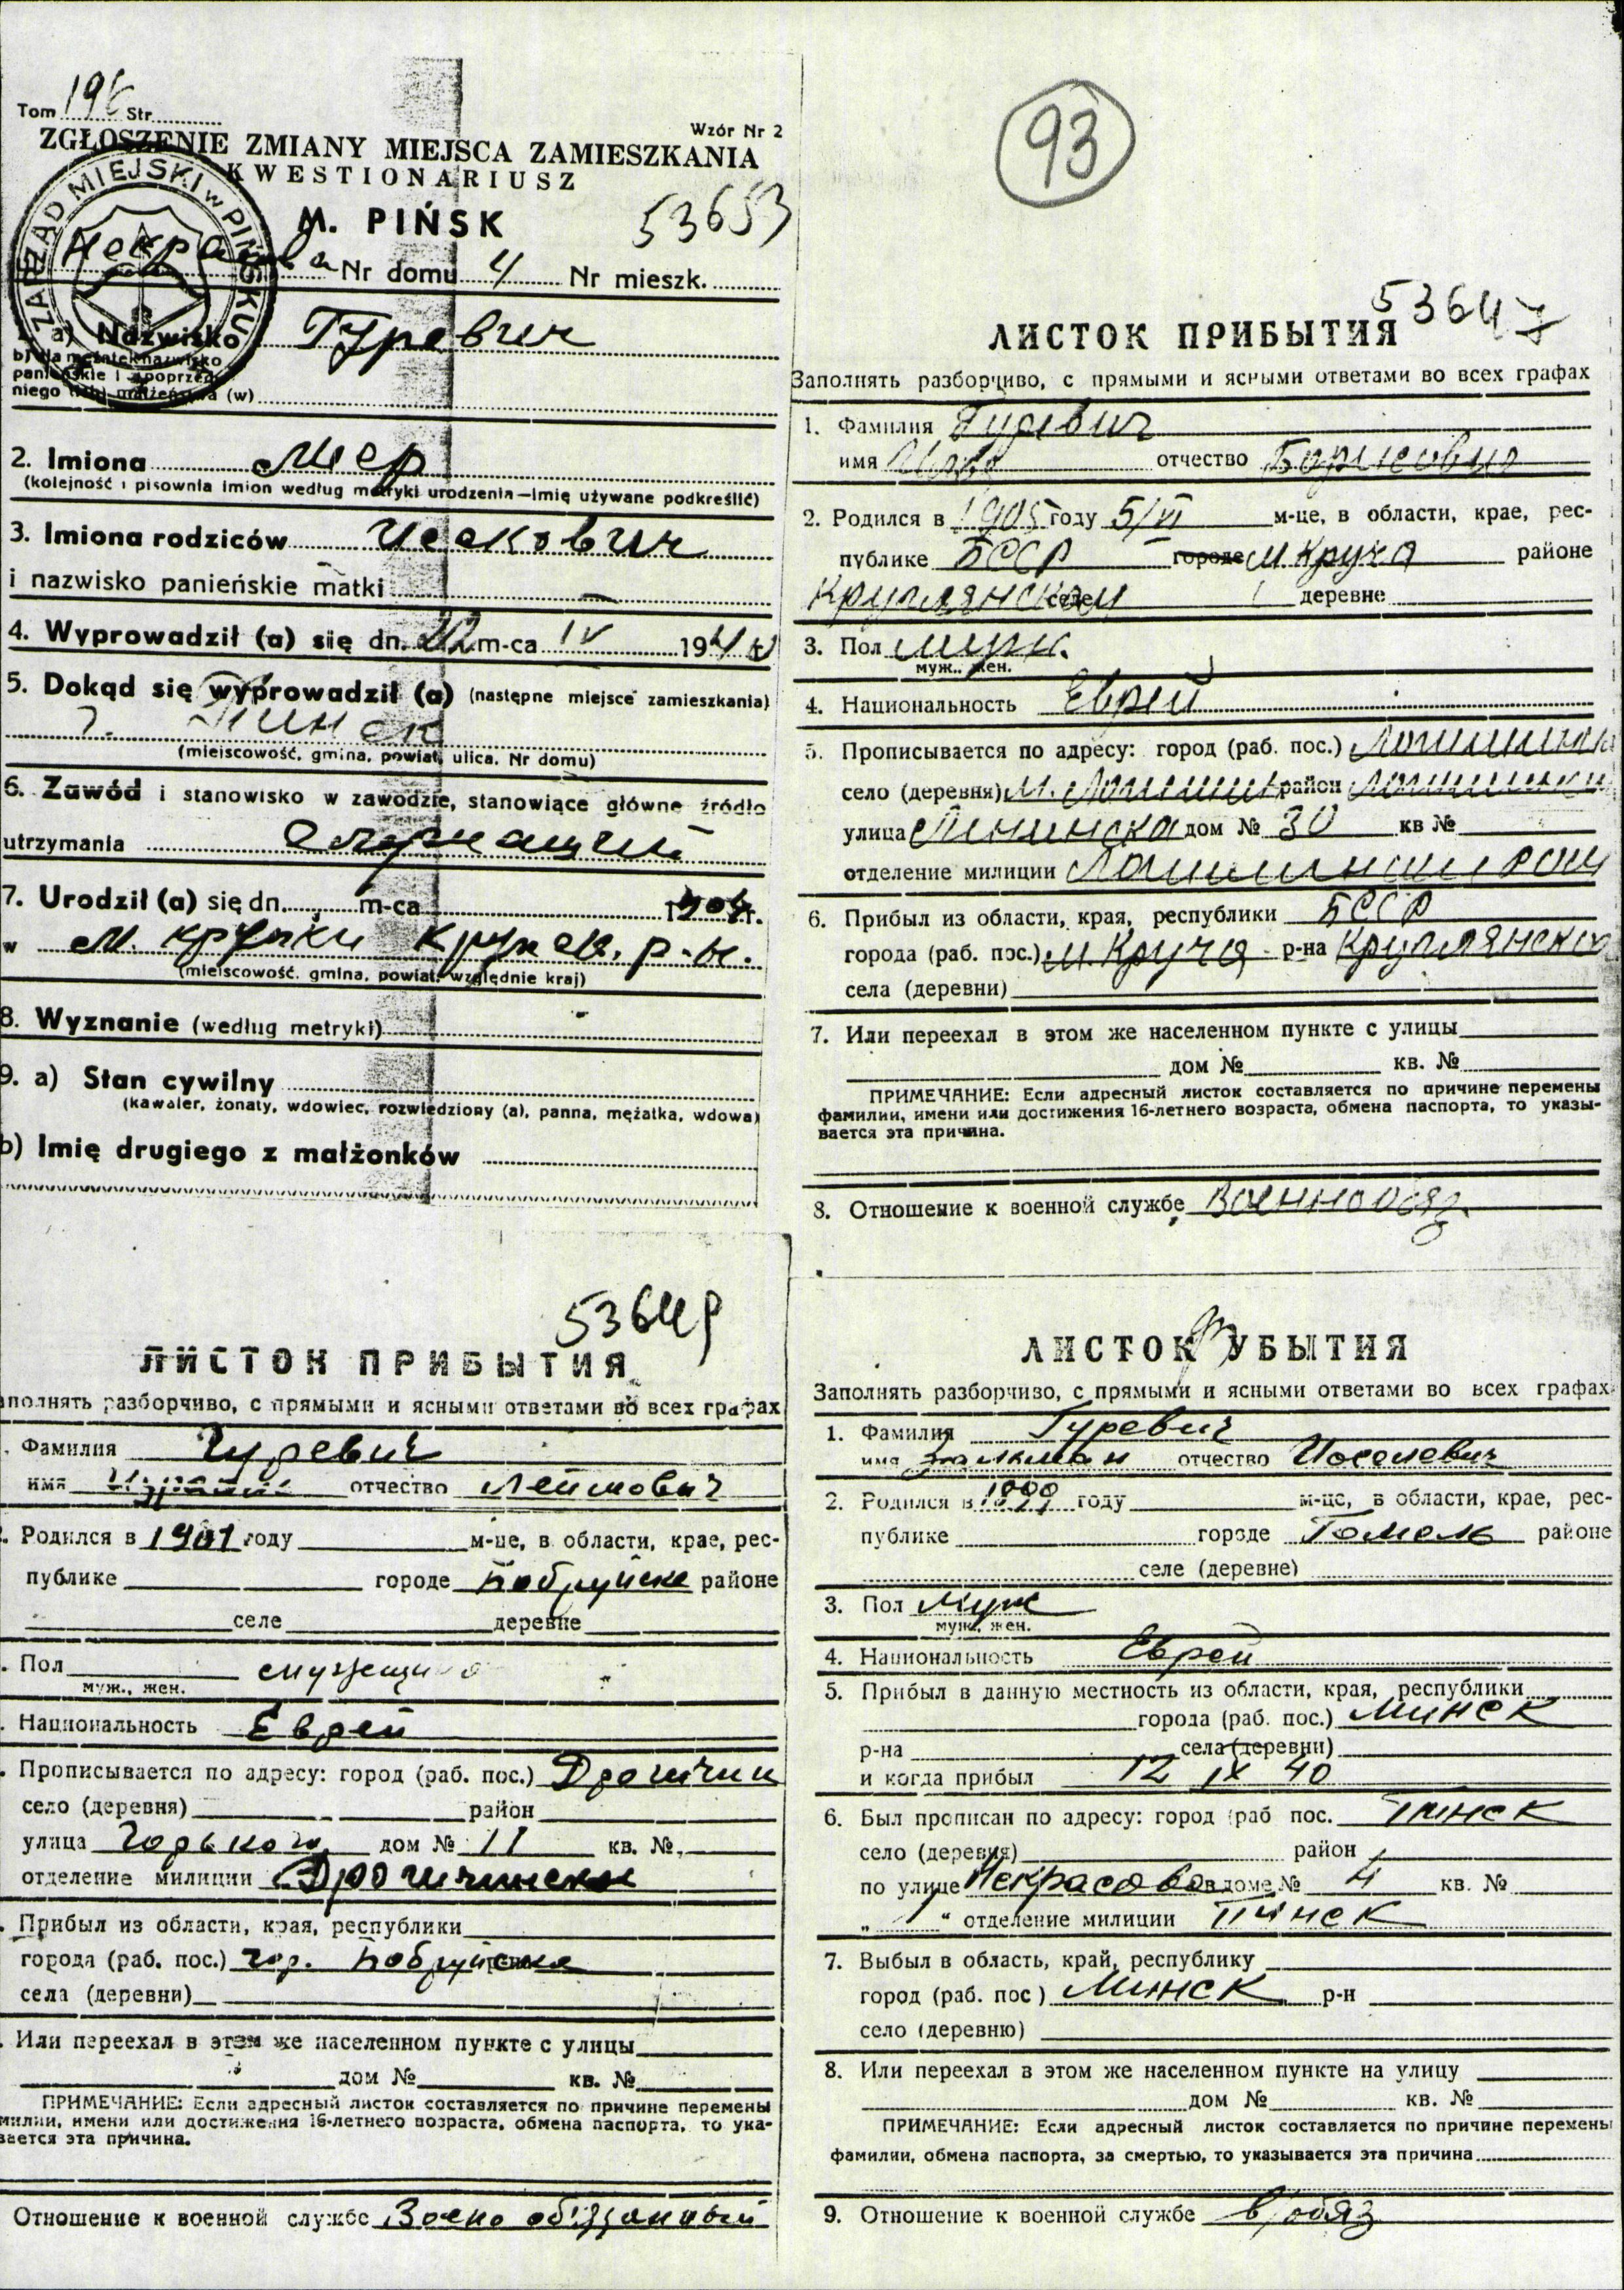 Tom 196 Str.
Wzór Nr 2
ZGŁOSZENIE ZMIANY MIEJSCA ZAMIESZKANIA
KWESTIONARIUSZ
ZARZĄD MIEJSKI w PIŃSKU
M. PIŃSK 53653
Nr domu 4 Nr mieszk.
a) Nazwisko Гуревич
b) dla mężatek nazwisko
panieńskie i z poprzed-
niego (ich) małżeństwa (w)
2. Imiona Меер
(kolejność i pisownia imion według metryki urodzenia—imię używane podkreślić)
3. Imiona rodziców
i nazwisko panieńskie matki —
4. Wyprowadził (a) się dn. 22 m-ca IV 194
5. Dokąd się wyprowadził (a) (następne miejsce zamieszkania)
(miejscowość, gmina, powiat, ulica, Nr domu)
6. Zawód i stanowisko w zawodzie, stanowiące główne źródło
utrzymania
7. Urodził (a) się dn. m-ca r.
w м. крупки р-н.
(miejscowość, gmina, powiat, względnie kraj)
8. Wyznanie (według metryki)
9. a) Stan cywilny
(kawaler, żonaty, wdowiec, rozwiedziony (a), panna, mężatka, wdowa)
b) Imię drugiego z małżonków
93
53647
ЛИСТОК ПРИБЫТИЯ
Заполнять разборчиво, с прямыми и ясными ответами во всех графах
1. Фамилия Гуревич
имя отчество Борисович
2. Родился в 1905 году 5/VI м-це, в области, крае, рес-
публике БССР городе м Круча районе
Круглянском селе деревне
3. Пол муж.
муж., жен.
4. Национальность Еврей
5. Прописывается по адресу: город (раб. пос.)
село (деревня) м. Логишин район
улица Ленинска дом № 30 кв №
отделение милиции
6. Прибыл из области, края, республики БССР
города (раб. пос.) м. Круча р-на Круглянско
села (деревни)
7. Или переехал в этом же населенном пункте с улицы
дом № кв. №
ПРИМЕЧАНИЕ: Если адресный листок составляется по причине перемены
фамилии, имени или достижения 16-летнего возраста, обмена паспорта, то указы-
вается эта причина.
8. Отношение к военной службе Военнообяз.
53649
ЛИСТОК ПРИБЫТИЯ
аполнять разборчиво, с прямыми и ясными ответами во всех графах
. Фамилия Гуревич
имя отчество Леймович
. Родился в 1901 году м-це, в области, крае, рес-
публике городе Бобруйске районе
селе деревне
. Пол мужщина
муж., жен.
. Национальность Еврей
. Прописывается по адресу: город (раб. пос.) Дрогичин
село (деревня) район
улица Горького дом № 11 кв. №
отделение милиции
. Прибыл из области, края, республики
города (раб. пос.) гор. Бобруйска
села (деревни)
. Или переехал в этом же населенном пункте с улицы
дом № кв. №
ПРИМЕЧАНИЕ: Если адресный листок составляется по причине перемены
милии, имени или достижения 16-летнего возраста, обмена паспорта, то ука-
зается эта причина.
Отношение к военной службе Воено обязанный
ЛИСТОК УБЫТИЯ
Заполнять разборчиво, с прямыми и ясными ответами во всех графах
1. Фамилия Гуревич
имя Залкман отчество Иоселевич
2. Родился в году м-це, в области, крае, рес-
публике городе Гомель районе
селе (деревне)
3. Пол муж
муж., жен.
4. Национальность Еврей
5. Прибыл в данную местность из области, края, республики
города (раб. пос.) Минск
р-на села (деревни)
и когда прибыл 12 IX 40
6. Был прописан по адресу: город (раб пос. Пинск
село (деревня) район
по улице Некрасова в доме № 4 кв. №
„ “ отделение милиции Пинск
7. Выбыл в область, край, республику
город (раб. пос ) Минск р-н
село (деревню)
8. Или переехал в этом же населенном пункте на улицу
дом № кв. №
ПРИМЕЧАНИЕ: Если адресный листок составляется по причине перемены
фамилии, обмена паспорта, за смертью, то указывается эта причина
9. Отношение к военной службе в/обяз